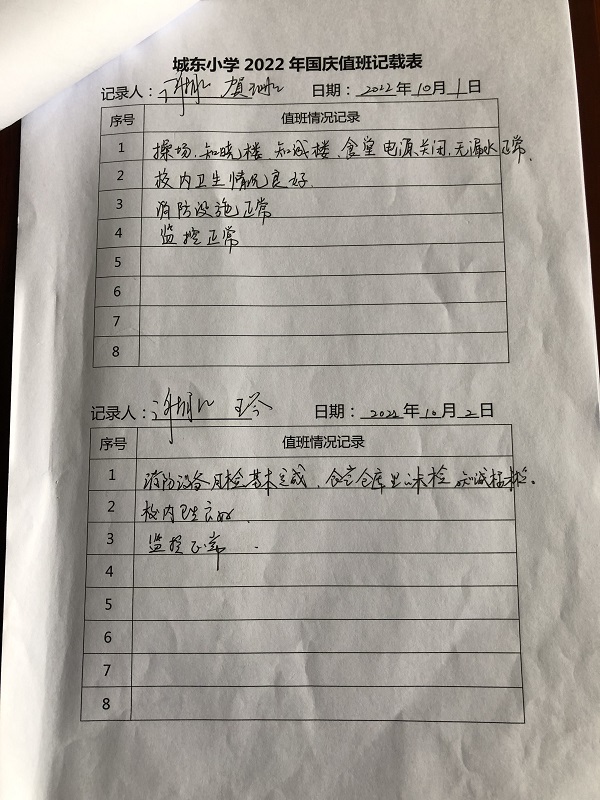 城东小学2022年国庆值班记载表
记录人： 贺 日期：2022年10月1日
序号 值班情况记录
1 操场、知晓楼、知成楼、食堂电源关闭，无漏水正常.
2 校内卫生情况良好.
3 消防设施正常
4 监控正常
5
6
7
8
记录人： 日期：2022年10月2日
序号 值班情况记录
1 消防设备月检基本完成，食堂仓库 未检
2 校内卫生良好.
3 监控正常.
4
5
6
7
8